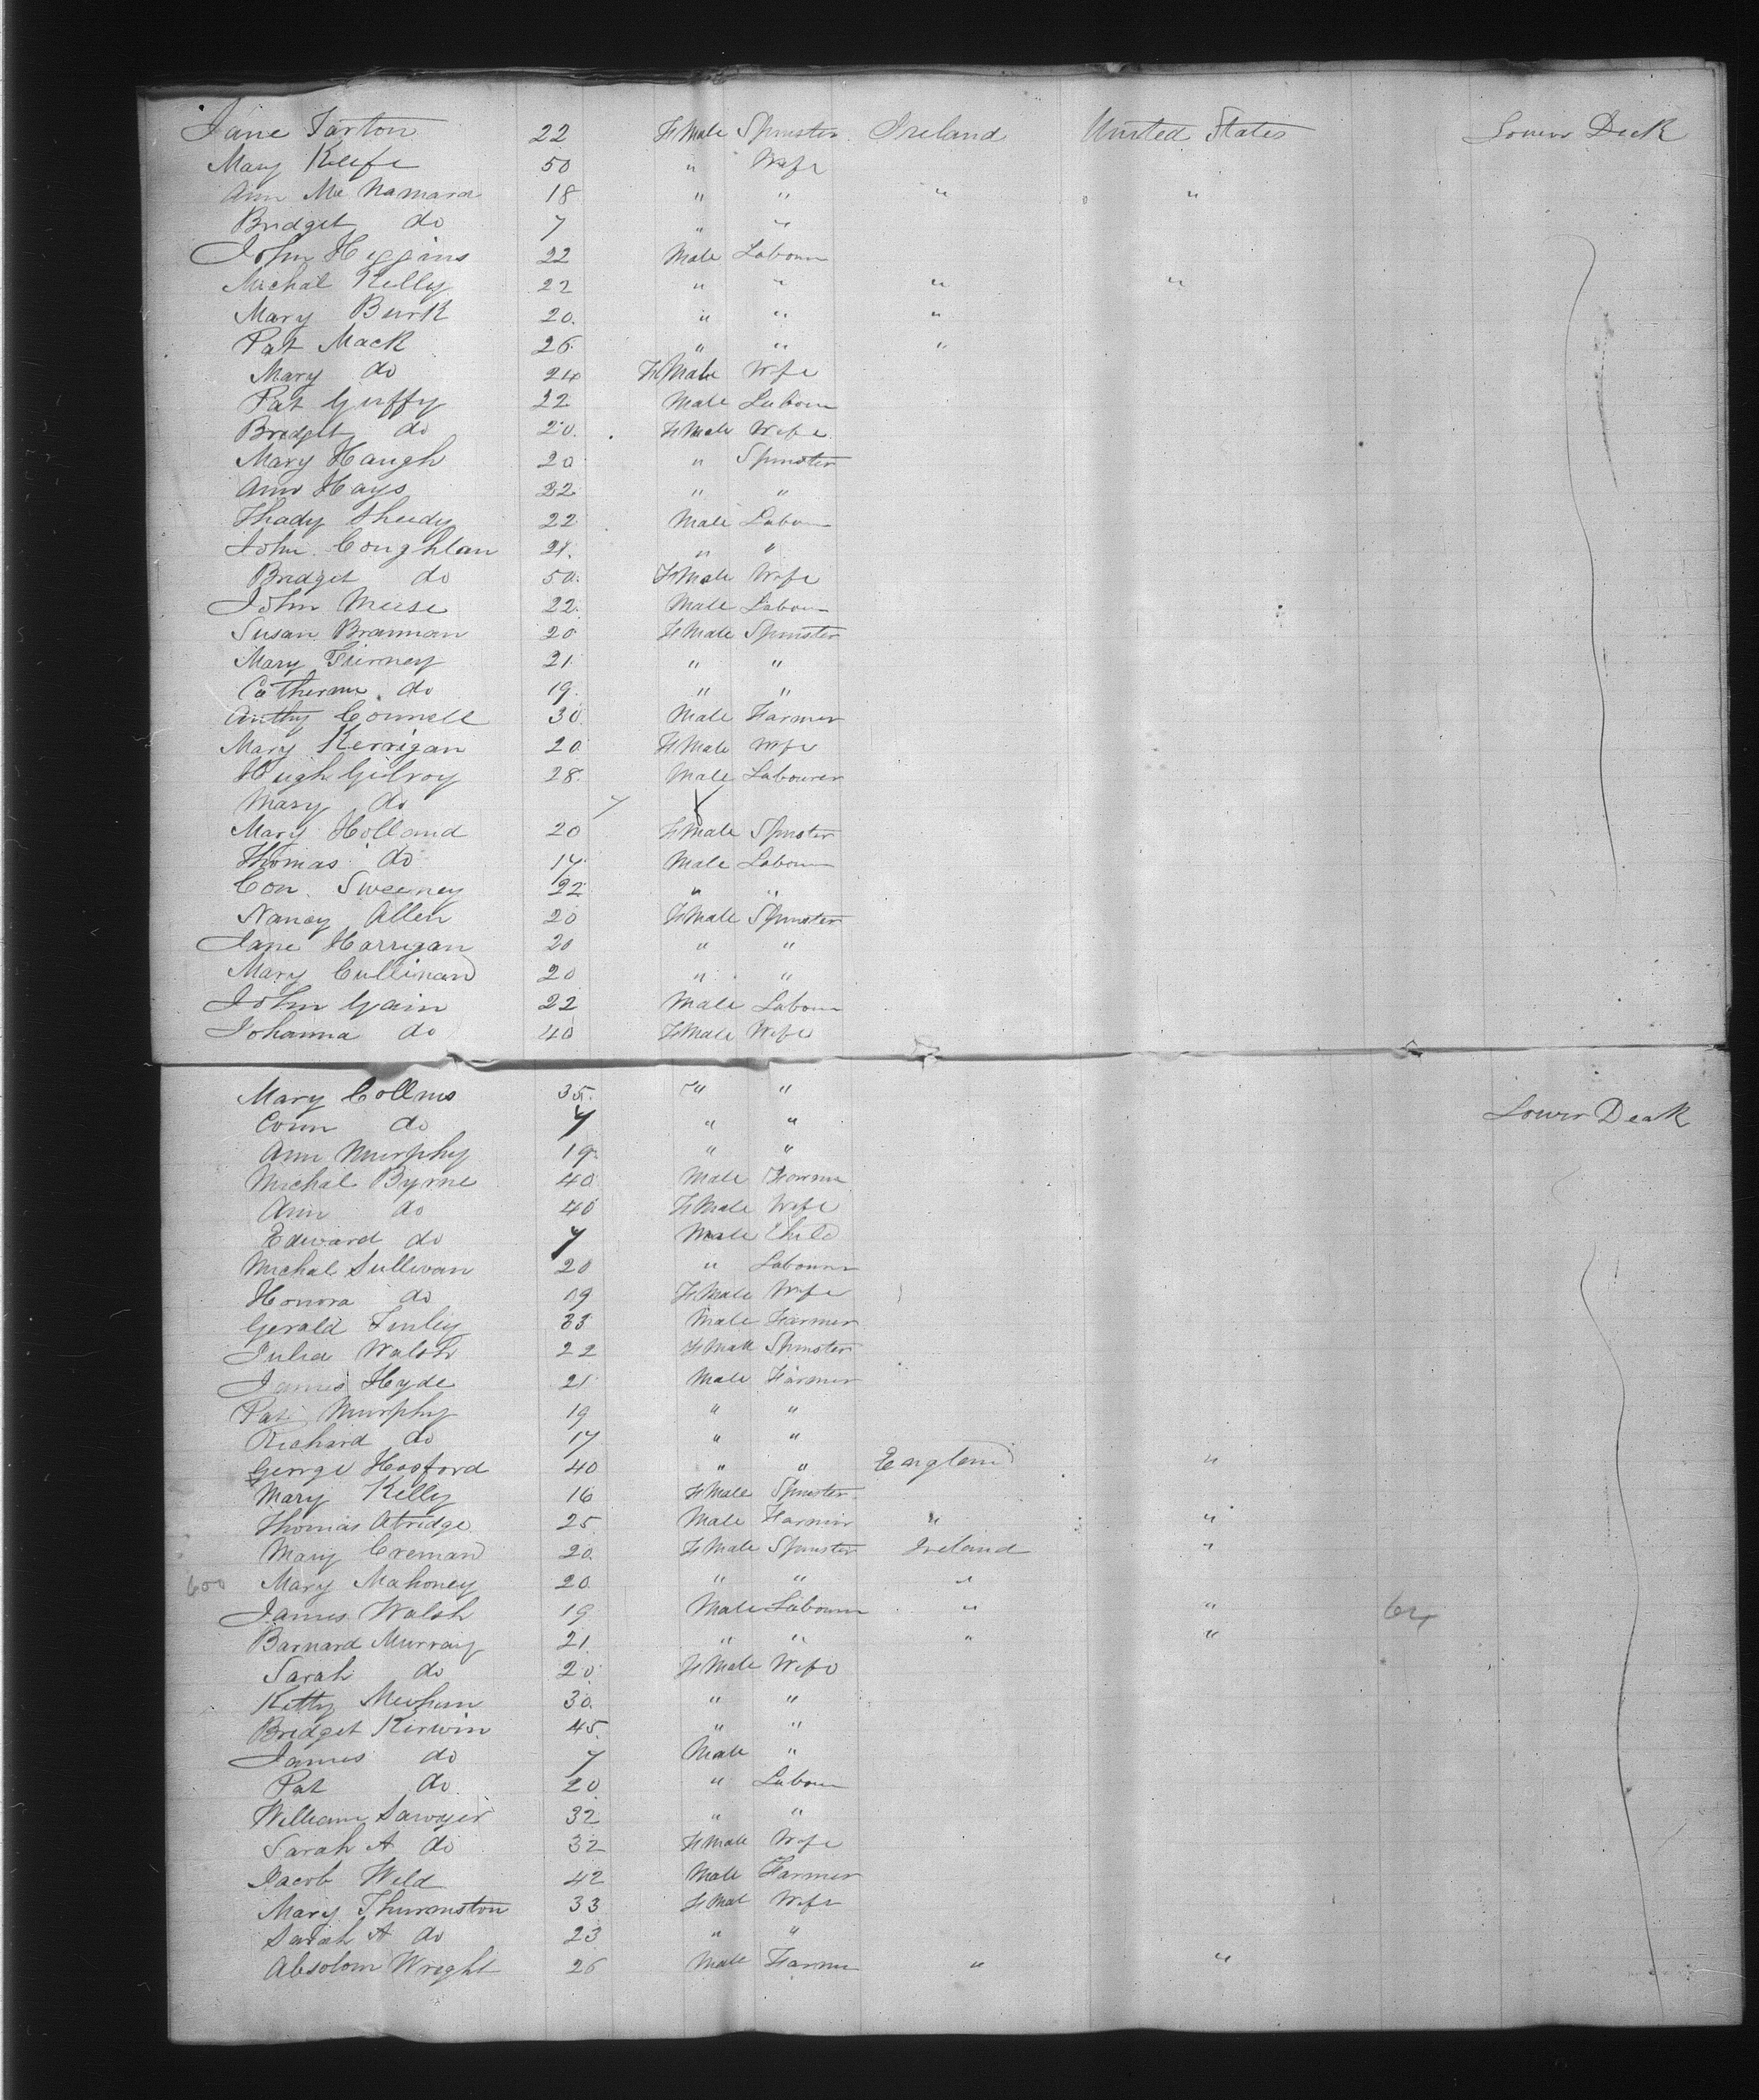 Jane Tarton 22 FeMale Spinster Ireland United States Lower Deck
Mary Keefe 50 " Wife
Ann Mc Namara 18 " " " "
Bridget do 7 " "
John Higgins 22 Male Labourer
Michal Kelly 22 " " " "
Mary Burk 20 " " "
Pat Mack 26 " " "
Mary do 24 FeMale Wife
Pat Guffy 22 Male Labour
Bridget do 20 FeMale Wife
Mary Haugh 20 " Spinster
Ann Hays 22 " "
Thady Sheedy 22 Male Labour
John Coughlan 21 " "
Bridget do 50 FeMale Wife
John Meese 22 Male Labour
Susan Brannan 20 FeMale Spinster
Mary Tierney 21 " "
Catherine do 19 " "
Anthy Connell 30 Male Farmer
Mary Kerrigan 20 FeMale Wife
Hugh Gilroy 28 Male Labourer
Mary do 7
Mary Holland 20 FeMale Spinster
Thomas do 17 Male Labour
Con Sweeney 22 " "
Nancy Allen 20 FeMale Spinster
Jane Harrigan 20 " "
Mary Cullinan 20 " "
John Gain 22 Male Labour
Johanna do 40 FeMale Wife
Mary Collins 35 " "
Conn do 7 " " Lower Deck
Ann Murphy 19 " "
Michal Byrne 40 Male Farmer
Ann do 40 FeMale Wife
Edward do 7 Male Child
Michal Sullivan 20 " Labourer
Honora do 19 FeMale Wife
Gerald Finley 33 Male Farmer
Julia Walsh 22 FeMale Spinster
James Hyde 21 Male Farmer
Pat Murphy 19 " "
Richard do 17 " "
George Hosford 40 " " England "
Mary Kelly 16 FeMale Spinster
Thomas Atridge 25 Male Farmer " "
Mary Creman 20 FeMale Spinster Ireland "
600 Mary Mahoney 20 " " "
James Walsh 19 Male Labourer " " 64
Barnard Murray 21 " " " "
Sarah do 20 FeMale Wife
Kitty Meehan 30 " "
Bridget Kirwin 45 " "
James do 7 Male "
Pat do 20 " Labour
William Sawyer 32 " "
Sarah A do 32 FeMale Wife
Jacob Weld 42 Male Farmer
Mary Thurmston 33 FeMal Wife
Sarah A do 23 " "
Absolom Wright 26 Male Farmer " "